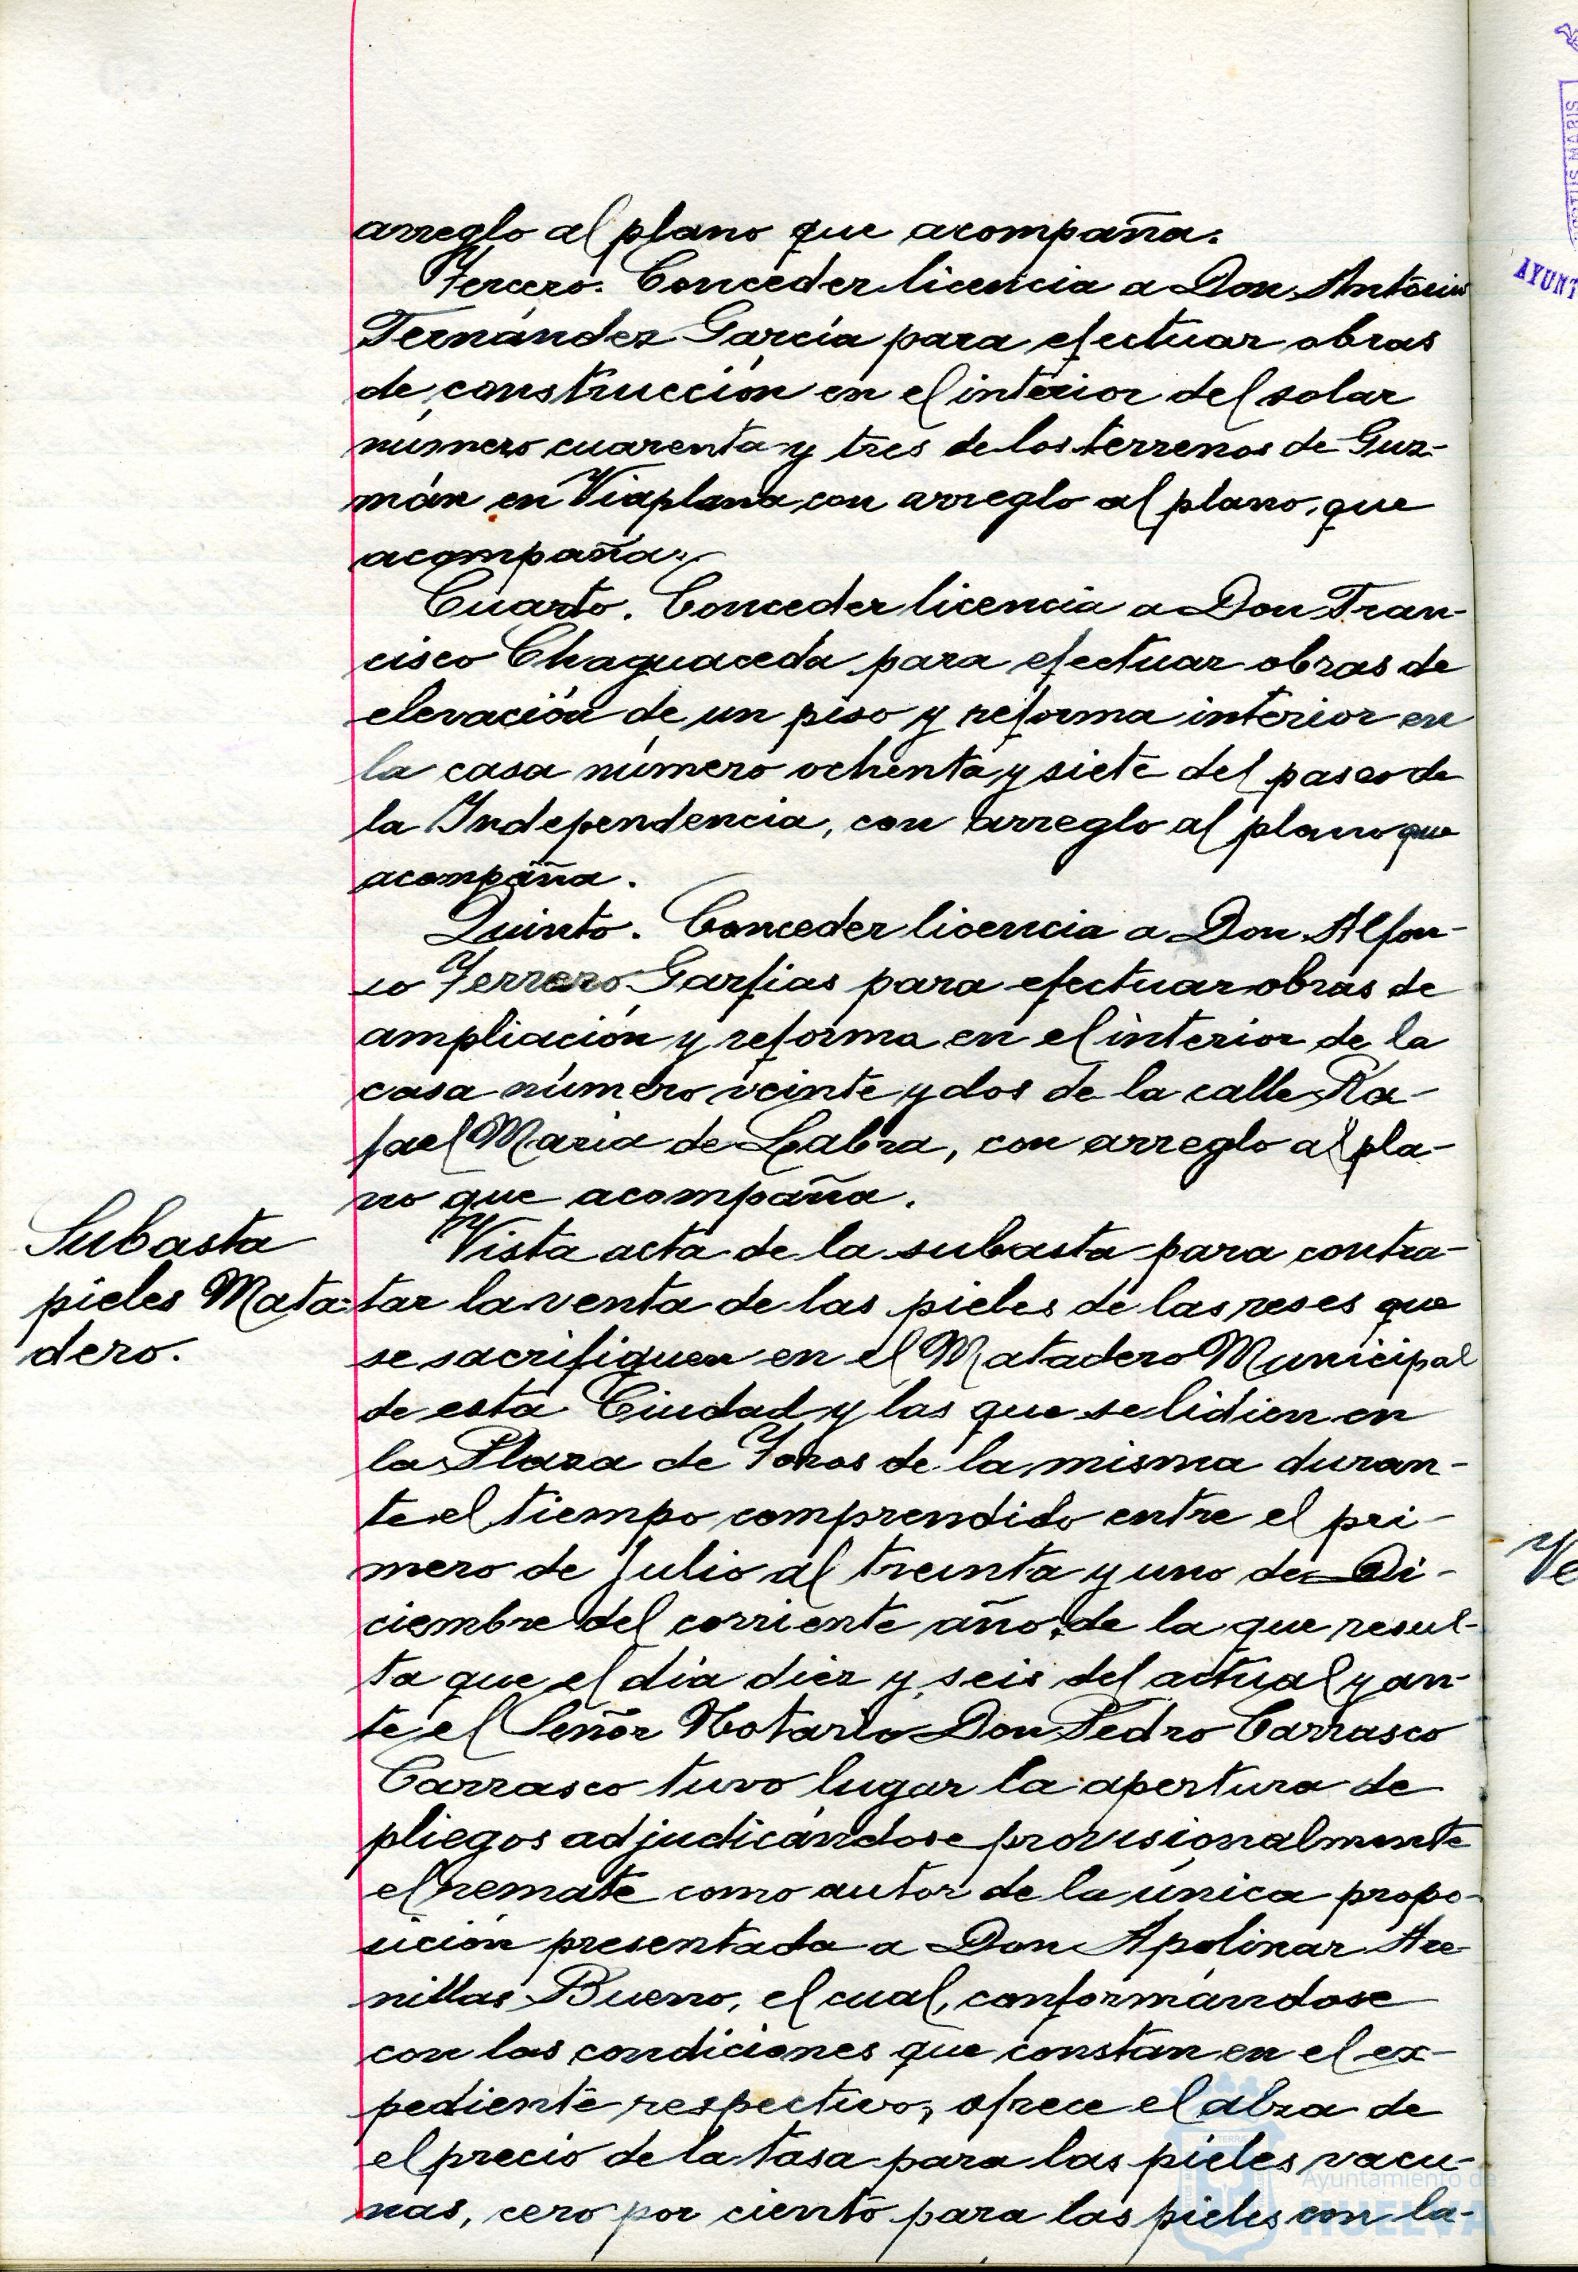 arreglo al plano que acompaña.
Tercero. Conceder licencia a Don Antonio
Fernández García para efectuar obras
de construcción en el interior del solar
número cuarenta y tres de los terrenos de Guz-
mán en Viaplana con arreglo al plano que
acompaña.
Cuarto. Conceder licencia a Don Fran-
cisco Chaguaceda para efectuar obras de
elevación de un piso y reforma interior en
la casa número ochenta y siete del paseo de
la Independencia, con arreglo al plano que
acompaña.
Quinto. Conceder licencia a Don Alfon-
so Ferrero Garfias para efectuar obras de
ampliación y reforma en el interior de la
casa número veinte y dos de la calle Ra-
fael Maria de Labra, con arreglo al pla-
no que acompaña.
Subasta
pieles Mata-
dero.
Vista acta de la subasta para contra-
tar la venta de las pieles de las reses que
se sacrifiquen en el Matadero Municipal
de esta Ciudad y las que se lidien en
la Plaza de Toros de la misma duran-
te el tiempo comprendido entre el pri-
mero de Julio al treinta y uno de Di-
ciembre del corriente año, de la que resul-
ta que el día diez y seis del actual y an-
te el Señor Notario Don Pedro Carrasco
Carrasco tuvo lugar la apertura de
pliegos adjudicándose provisionalmente
el remate como autor de la única propo-
sición presentada a Don Apolinar Are-
nillas Bueno, el cual, conformándose
con las condiciones que constan en el ex-
pediente respectivo, ofrece el alza de
el precio de la tasa para las pieles vacu-
nas, cero por ciento para las pieles con la-
Ayuntamiento de
HUELVA
AYUNT
Ve